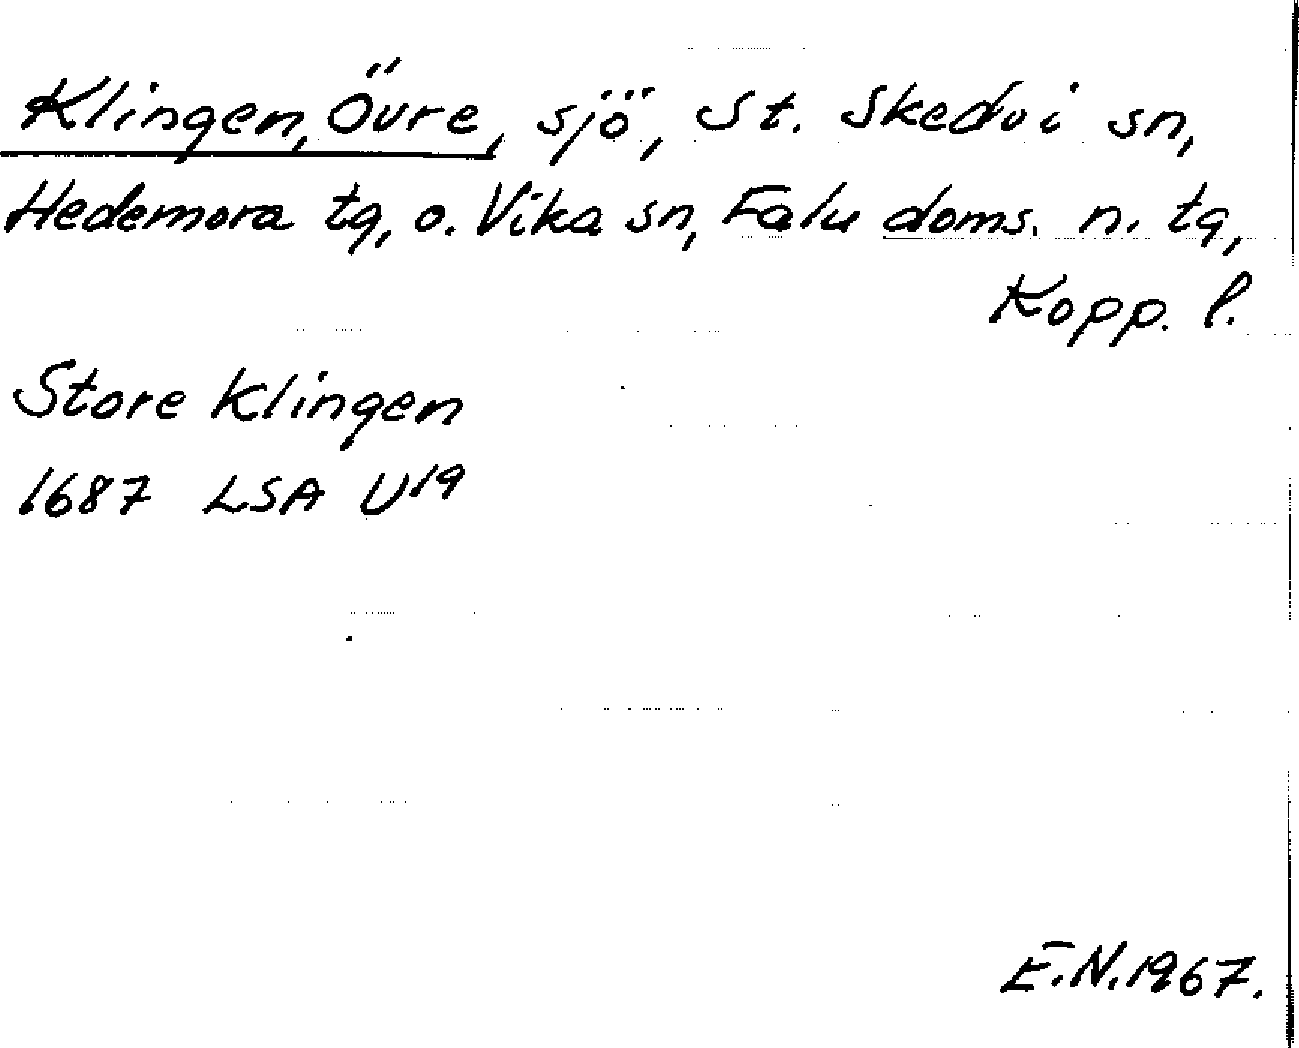 Klingen, Övre, sjö, St. Skedvi sn,
Hedemora tg, o. Vika sn, Falu doms. n. tg,
Kopp. l.
Store Klingen
1687 LSA U19
E.N.1967.